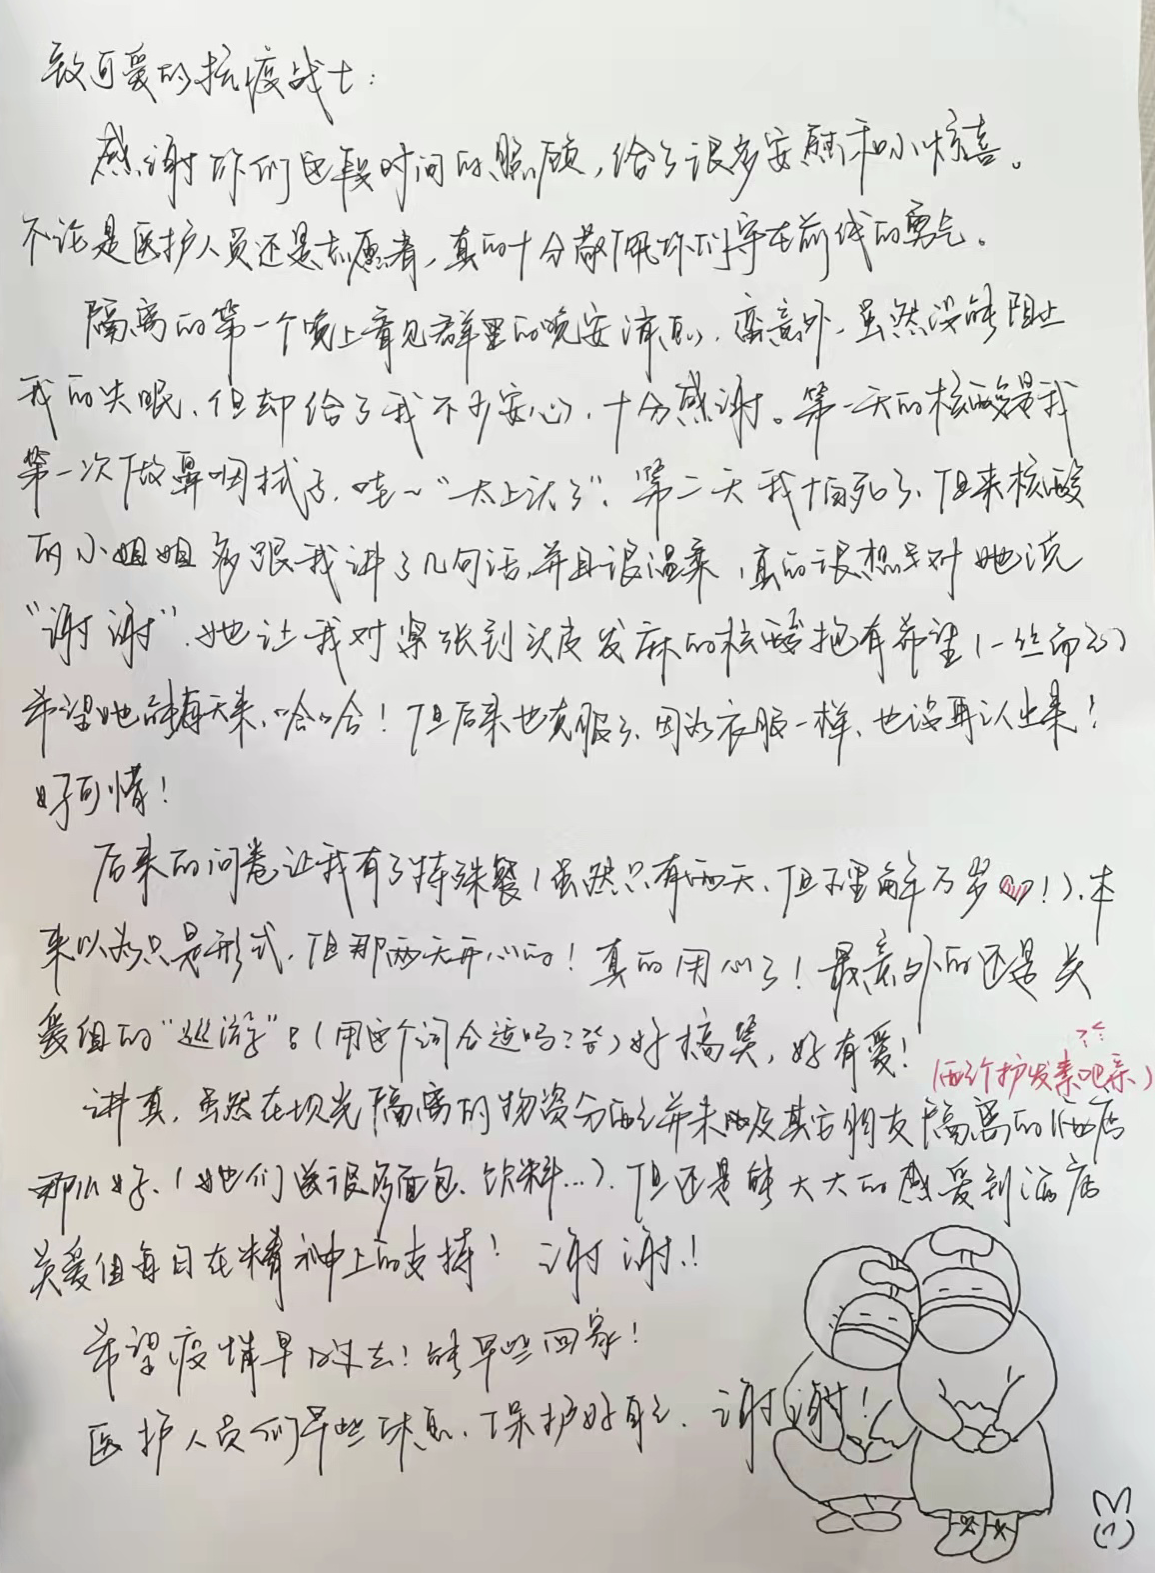 致可爱的抗疫战士：
感谢你们这段时间的照顾，给了很多安慰和小惊喜。
不论是医护人员还是志愿者，真的十分敬佩你们守在前线的勇气。
隔离的第一个晚上看见群里的晚安消息，蛮意外，虽然没能阻止
我的失眠，但却给了我不少安心，十分感谢。第一天的核酸是我
第一次做鼻咽拭子，哇~“太上头了”，第二天我怕死了，但来核酸
的小姐姐多跟我讲了几句话，并且很温柔，真的很想对她说
“谢谢”，她让我对紧张到头皮发麻的核酸抱有希望（一丝而已）
希望她能每天来，哈哈！但后来也克服了，因为衣服一样，也没再认出来！
好可惜！
后来的问卷让我有了特殊餐（虽然只有两天，但理解万岁！），本
来以为只是形式，但那两天开心的！真的用心了！最意外的还是关
爱组的“巡游”。（用这个词合适吗？）好搞笑，好有爱！
（两个护发素吧亲）
讲真，虽然在坝光隔离的物资分配并未及其它朋友隔离的酒店
那么好，（她们送很多面包、饮料...），但还是能大大的感受到酒店
关爱组每日在精神上的支持！谢谢！
希望疫情早日过去！能早些回家！
医护人员们早些休息，保护好自己，谢谢！